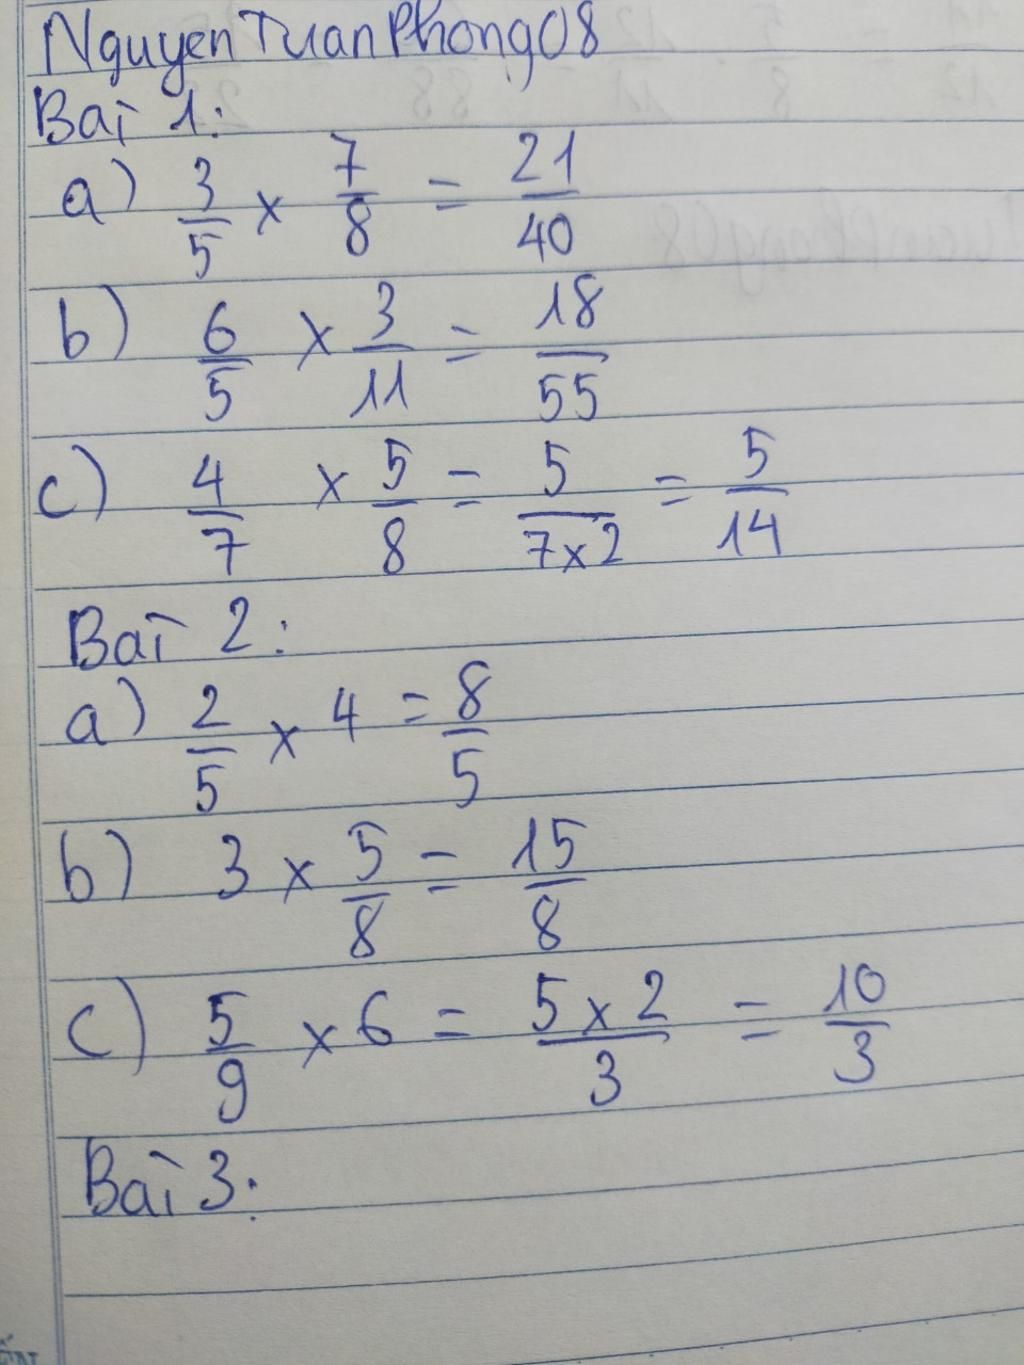 NguyenTuanPhong08
Bai 1:
a) 3/5 x 7/8 = 21/40
b) 6/5 x 3/11 = 18/55
c) 4/7 x 5/8 = 5/7x2 = 5/14
Bai 2:
a) 2/5 x 4 = 8/5
b) 3 x 5/8 = 15/8
c) 5/9 x 6 = 5x2/3 = 10/3
Bai 3: